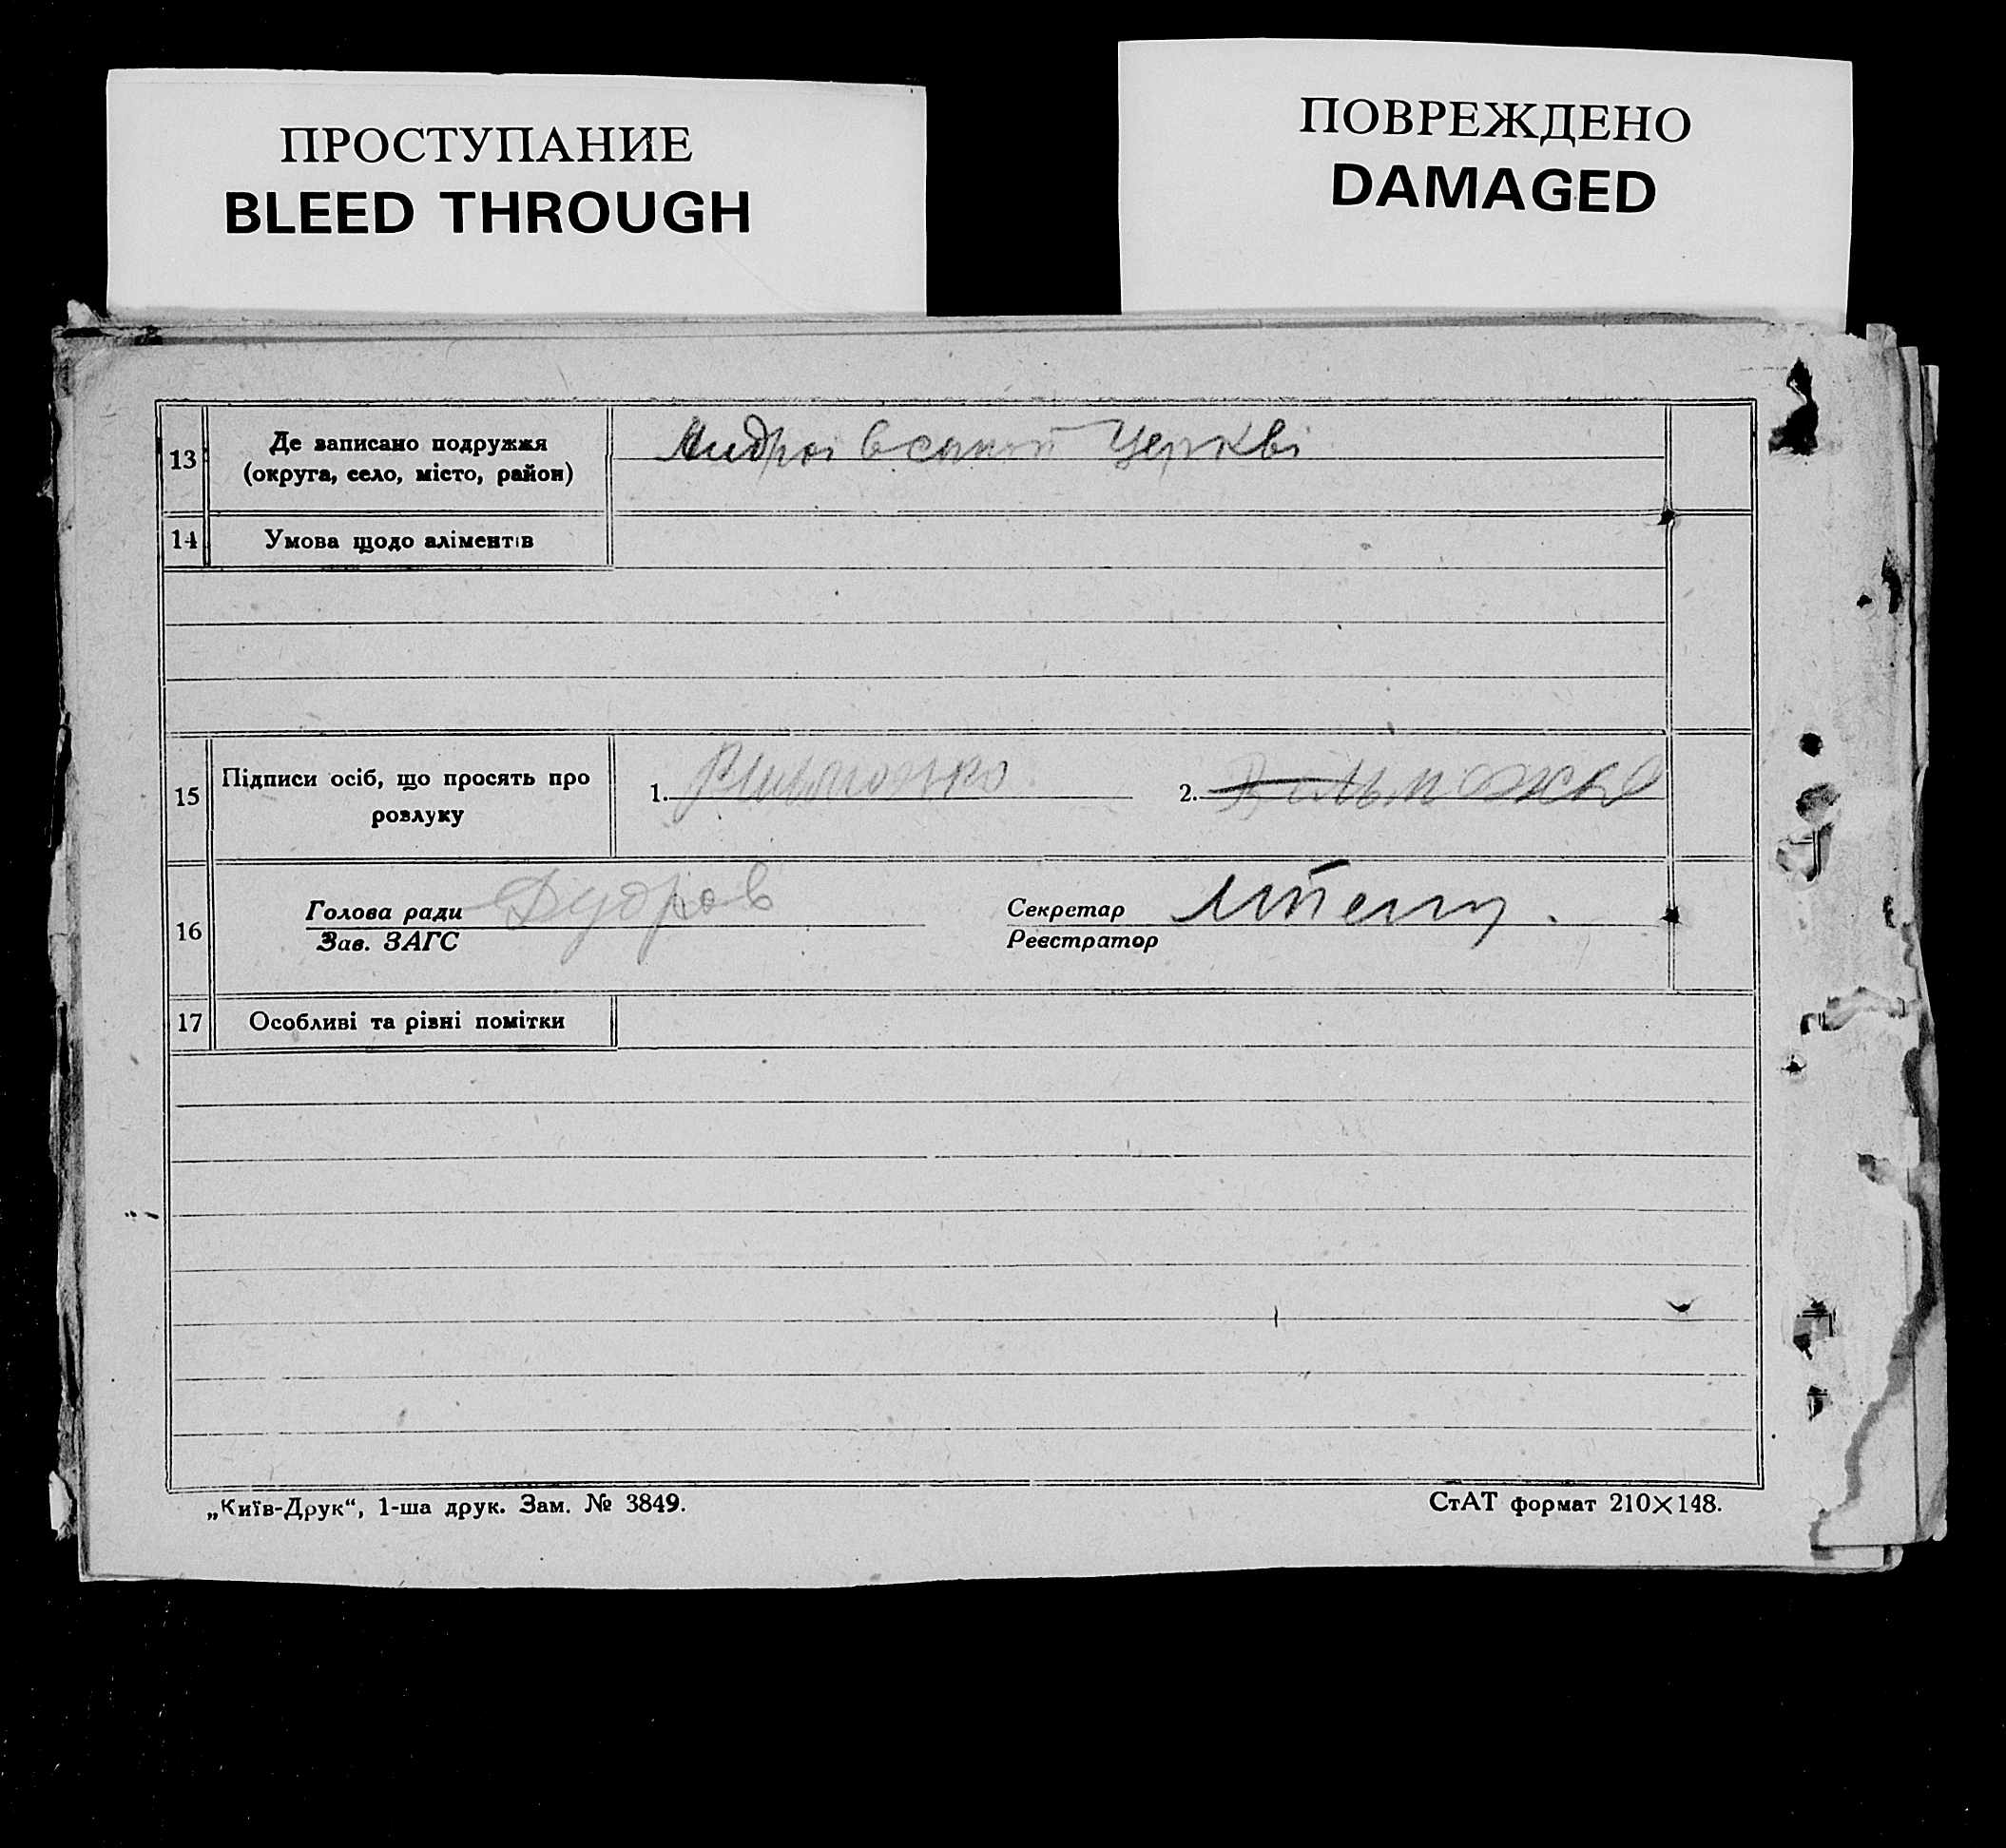 ПРОСТУПАНИЕ
BLEED THROUGH
ПОВРЕЖДЕНО
DAMAGED
13
Де записано подружжя
(округа, село, місто, район)
Церкві
14
Умова щодо аліментів
15
Підписи осіб, що просять про
розлуку
1.
2.
16
Голова ради
Зав. ЗАГС
Секретар
Реєстратор
17
Особливі та рівні помітки
„Київ-Друк“, 1-ша друк. Зам. № 3849.
СтАТ формат 210×148.